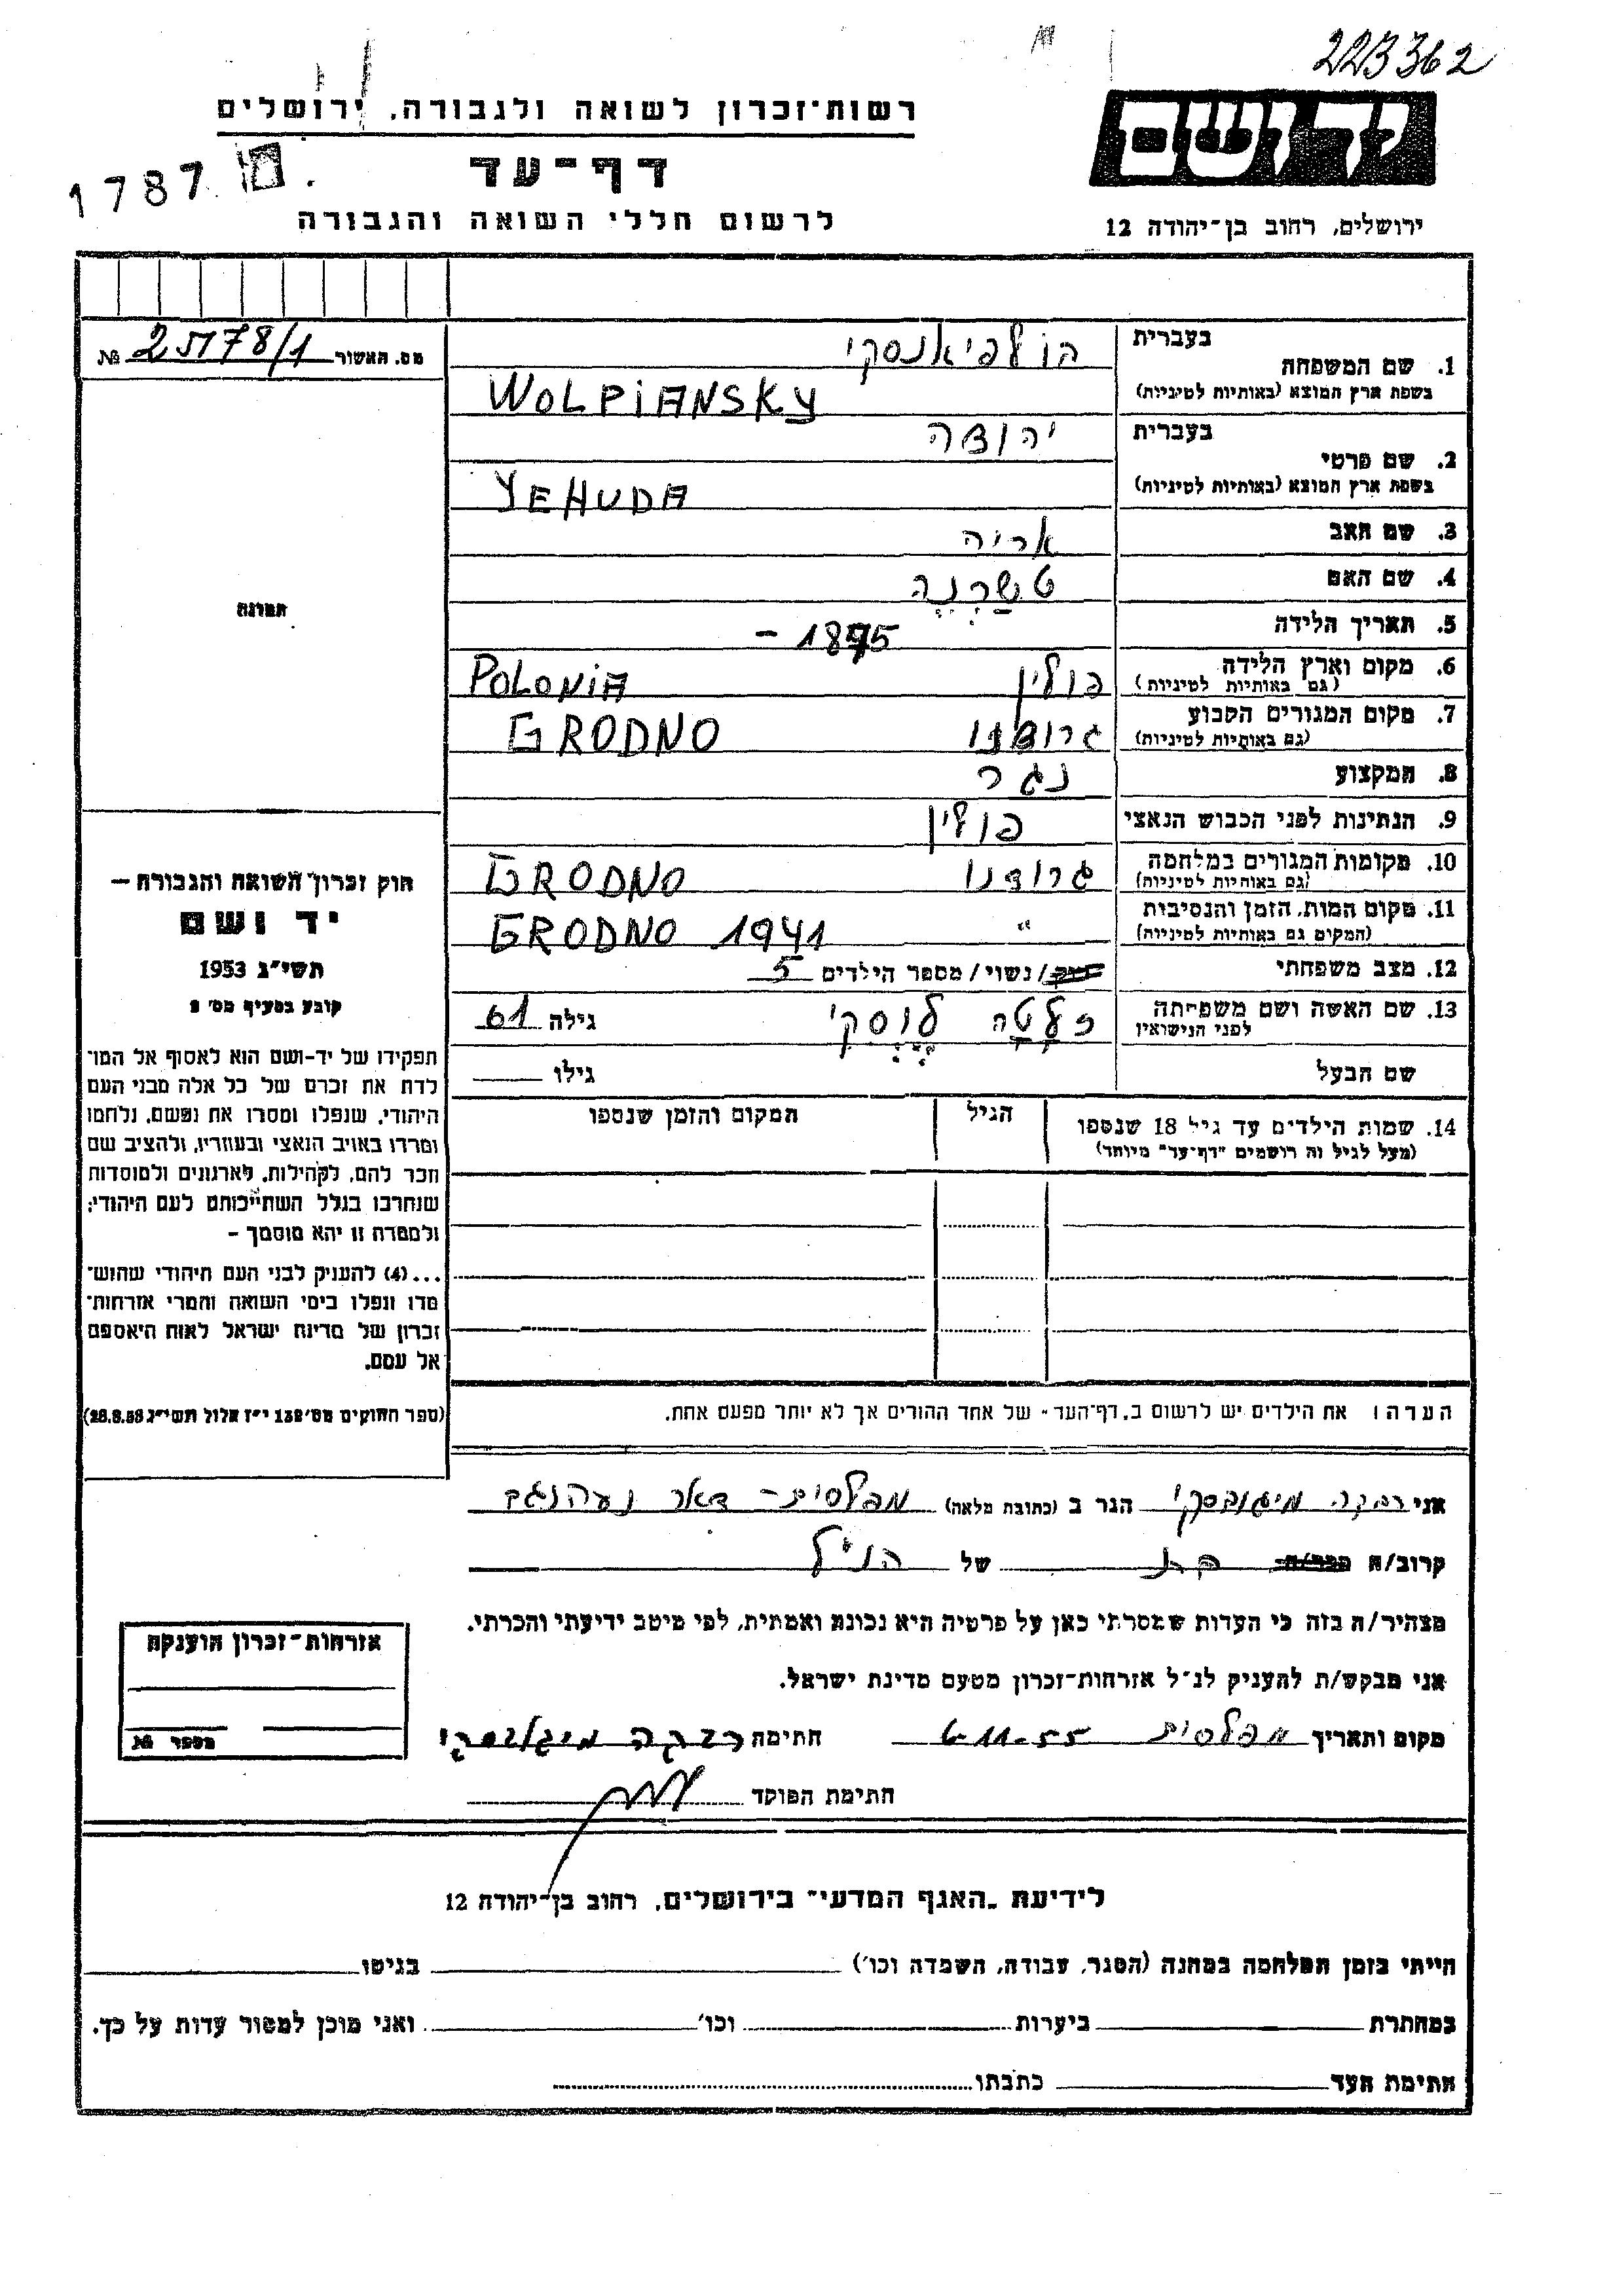 223362
רשות־זכרון לשואה ולגבורה, ירושלים
יד ושם
דף־עד
1787
לרשום חללי השואה והגבורה
ירושלים, רחוב בן־יהודה 12
מס. האשור 25178/1 №
בעברית
1. שם המשפחה
בשפת ארץ המוצא (באותיות לטיניות)
וולפיאנסקי
WOLPIANSKY
בעברית
2. שם פרטי
בשפת ארץ המוצא (באותיות לטיניות)
יהודה
YEHUDA
3. שם האב אריה
4. שם האם טשרנה
5. תאריך הלידה 1875 –
6. מקום וארץ הלידה פולין POLONIA
(גם באותיות לטיניות)
7. מקום המגורים הקבוע גרודנו GRODNO
(גם באותיות לטיניות)
8. המקצוע נגר
9. הנתינות לפני הכבוש הנאצי פולין
10. מקומות המגורים במלחמה גרודנו GRODNO
(גם באותיות לטיניות)
11. מקום המות, הזמן והנסיבות " GRODNO 1941
(המקום גם באותיות לטיניות)
12. מצב משפחתי /נשוי/ מספר הילדים 5
13. שם האשה ושם משפחתה זלטה לווסקי גילה 61
לפני הנישואין
שם הבעל גילו
14. שמות הילדים עד גיל 18 שנספו הגיל המקום והזמן שנספו
(מעל לגיל זה רושמים "דף־עד" מיוחד)
הערה: את הילדים יש לרשום ב„דף־העד" של אחד ההורים אך לא יותר מפעם אחת.
תמונה
חוק זכרון השואה והגבורה —
יד ושם
תשי״ג 1953
קובע בסעיף מס׳ 2
תפקידו של יד-ושם הוא לאסוף אל המו־
לדת את זכרם של כל אלה מבני העם
היהודי, שנפלו ומסרו את נפשם, נלחמו
ומרדו באויב הנאצי ובעוזריו, ולהציב שם
וזכר להם, לקהילות, לארגונים ולמוסדות
שנחרבו בגלל השתייכותם לעם היהודי;
ולמטרה זו יהא מוסמך –
...(4) להעניק לבני העם היהודי שהוש־
מדו ונפלו בימי השואה והמרי אזרחות־
זכרון של מדינת ישראל לאות היאספם
אל עמם.
(ספר החוקים מס׳ 132 י״ז אלול תשי״ג 28.8.53)
אני רבקה מיגובסקי הגר ב (כתובת מלאה) מפלסים – דאר נע הנגב
קרוב/ה בת של הנ״ל
מצהיר/ה בזה כי העדות שמסרתי כאן על פרטיה היא נכונה ואמתית, לפי מיטב ידיעתי והכרתי.
אני מבקש/ת להעניק לנ״ל אזרחות־זכרון מטעם מדינת ישראל.
מקום ותאריך מפלסים 6-11-55 חתימה רבקה מיגובסקי
חתימת הפוקד
אזרחות־זכרון הוענקה
מספר №
לידיעת „האגף המדעי" בירושלים, רחוב בן־יהודה 12
הייתי בזמן המלחמה במחנה (הסגר, עבודה, השמדה וכו׳) בגיטו
במחתרת ביערות וכו׳ ואני מוכן למסור עדות על כך.
חתימת העד כתבתו